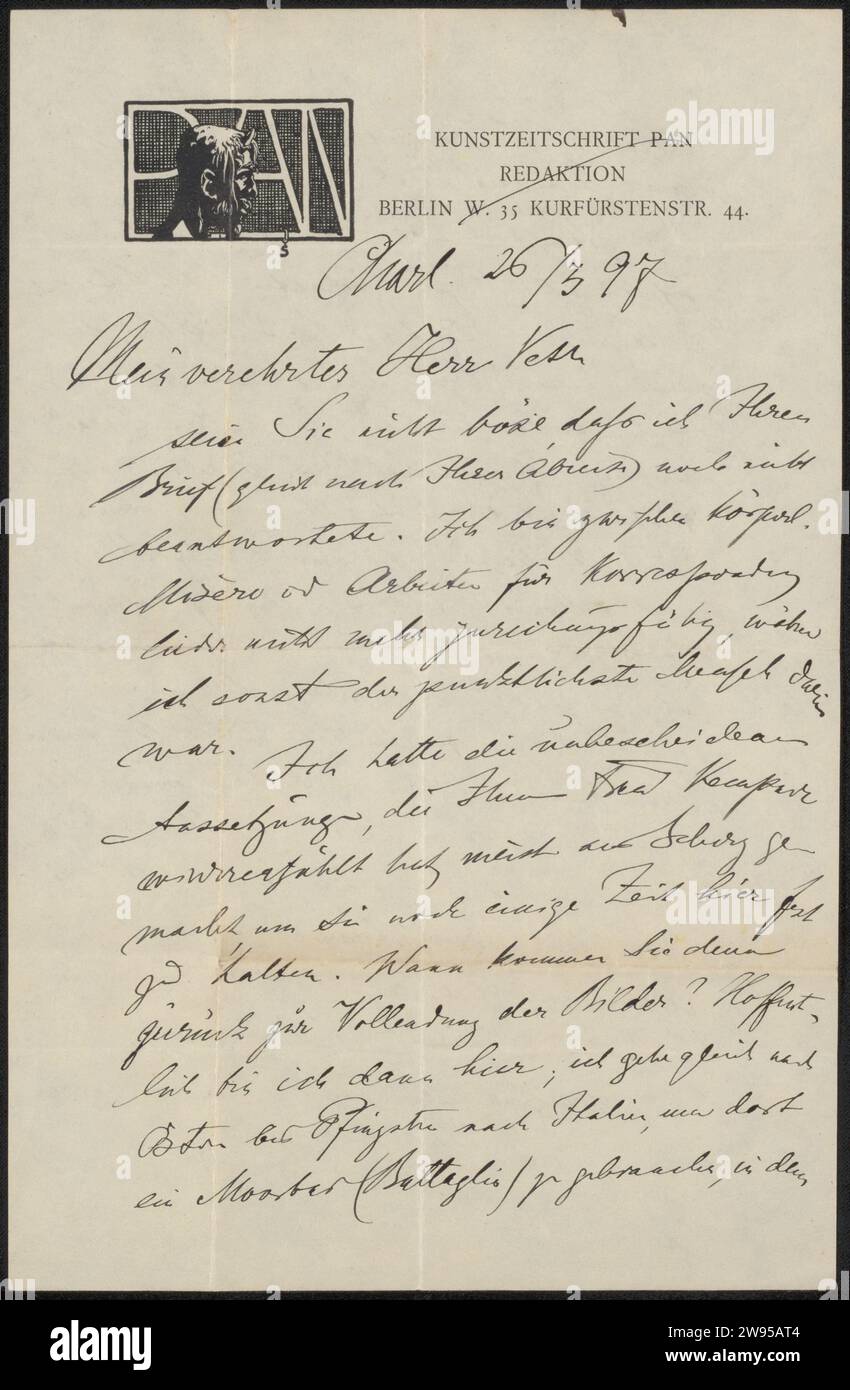 PAN
KUNSTZEITSCHRIFT PAN
REDAKTION
BERLIN W. 35 KURFÜRSTENSTR. 44.
Charl. 26/3 97
Mein verehrter Herr Veth
seien Sie nicht böse, dass ich Ihren
Brief (gleich nach Ihrer Abreise) noch nicht
beantwortete. Ich bin zwischen körperl.
Misère und Arbeiten für Korrespondenz
leider nicht mehr zurechnungsfähig, während
ich sonst der pünktlichste Mensch darin
war. Ich hatte die unbescheidenen
Aussetzungen, die Ihnen Frau
wiedererzählt hat, meist aus Scherz ge
macht, um Sie noch einige Zeit hier fest
zu halten. Wann kommen Sie denn
zurück zur Vollendung der Bilder? Hoffent-
lich bin ich dann hier; ich gehe gleich nach
Ostern bis Pfingsten nach Italien, um dort
ein Moorbad (Battaglia) zu gebrauchen, in dem
alamy
Image ID: 2W95AT4
www.alamy.com